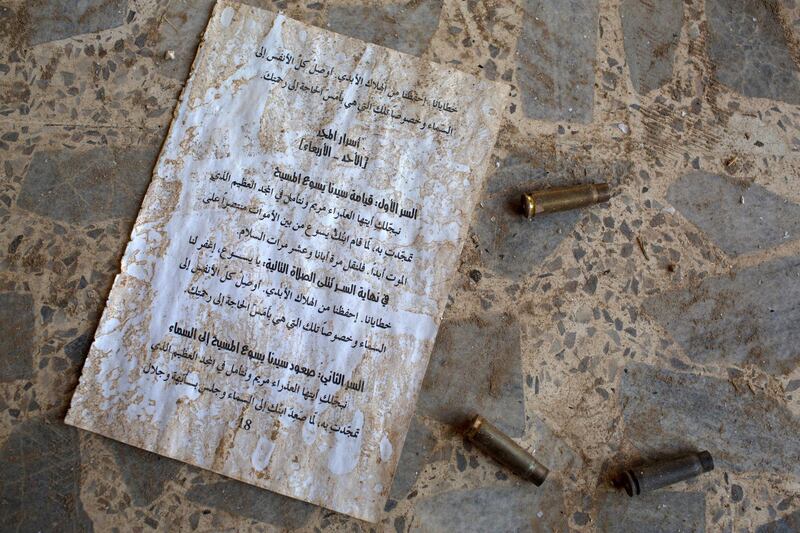 خطايانا. إحفظنا من الهلاك الأبدي. أوصل كلّ الأنفس إلى
السماء وخصوصاً تلك التي هي بأمسّ الحاجة إلى رحمتك.
أسرار المجد
[الأحد - الأربعاء]
السر الأول: قيامة سيدنا يسوع المسيح
نبجّلك أيتها العذراء مريم ونتأمل في المجد العظيم الذي
تمجّدت به، لمّا قام ابنك يسوع من بين الأموات منتصراً على
الموت أبداً. فلنقل مرة أبانا وعشر مرات السلام.
في نهاية السر تُتلى الصلاة التالية: يا يسوع، إغفر لنا
خطايانا. إحفظنا من الهلاك الأبدي. أوصل كلّ الأنفس إلى
السماء وخصوصاً تلك التي هي بأمسّ الحاجة إلى رحمتك.
السر الثاني: صعود سيدنا يسوع المسيح إلى السماء
نبجّلك أيتها العذراء مريم ونتأمل في المجد العظيم الذي
تمجّدت به، لمّا صعدَ ابنك إلى السماء وجلس بمهابة وجلال
18